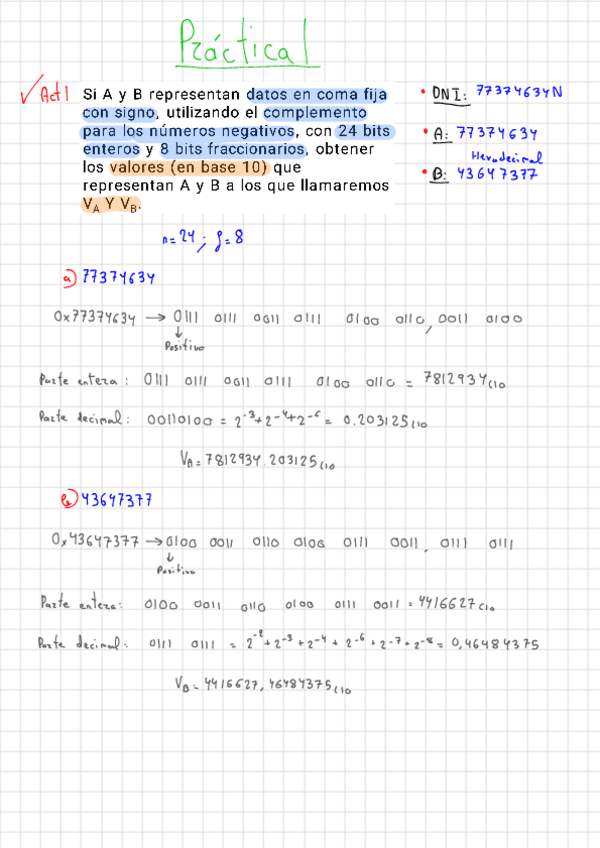 Práctica 1
Act 1
Si A y B representan datos en coma fija
con signo, utilizando el complemento
para los números negativos, con 24 bits
enteros y 8 bits fraccionarios, obtener
los valores (en base 10) que
representan A y B a los que llamaremos
V_A Y V_B.
• DNI: 77374634N
• A: 77374634
Hexadecimal
• B: 43647377
n=24 ; f=8
a) 77374634
0x77374634 → 0111 0111 0011 0111 0100 0110, 0011 0100
↓
Positivo
Parte entera: 0111 0111 0011 0111 0100 0110 = 7812934(10
Parte decimal: 00110100 = 2^-3+2^-4+2^-6 = 0.203125(10
V_A = 7812934.203125(10
b) 43647377
0x43647377 → 0100 0011 0110 0100 0111 0011. 0111 0111
↓
Positivo
Parte entera: 0100 0011 0110 0100 0111 0011 = 4416627(10
Parte decimal: 0111 0111 = 2^-2+2^-3+2^-4+2^-6+2^-7+2^-8 = 0,46484375
V_B = 4416627,46484375(10